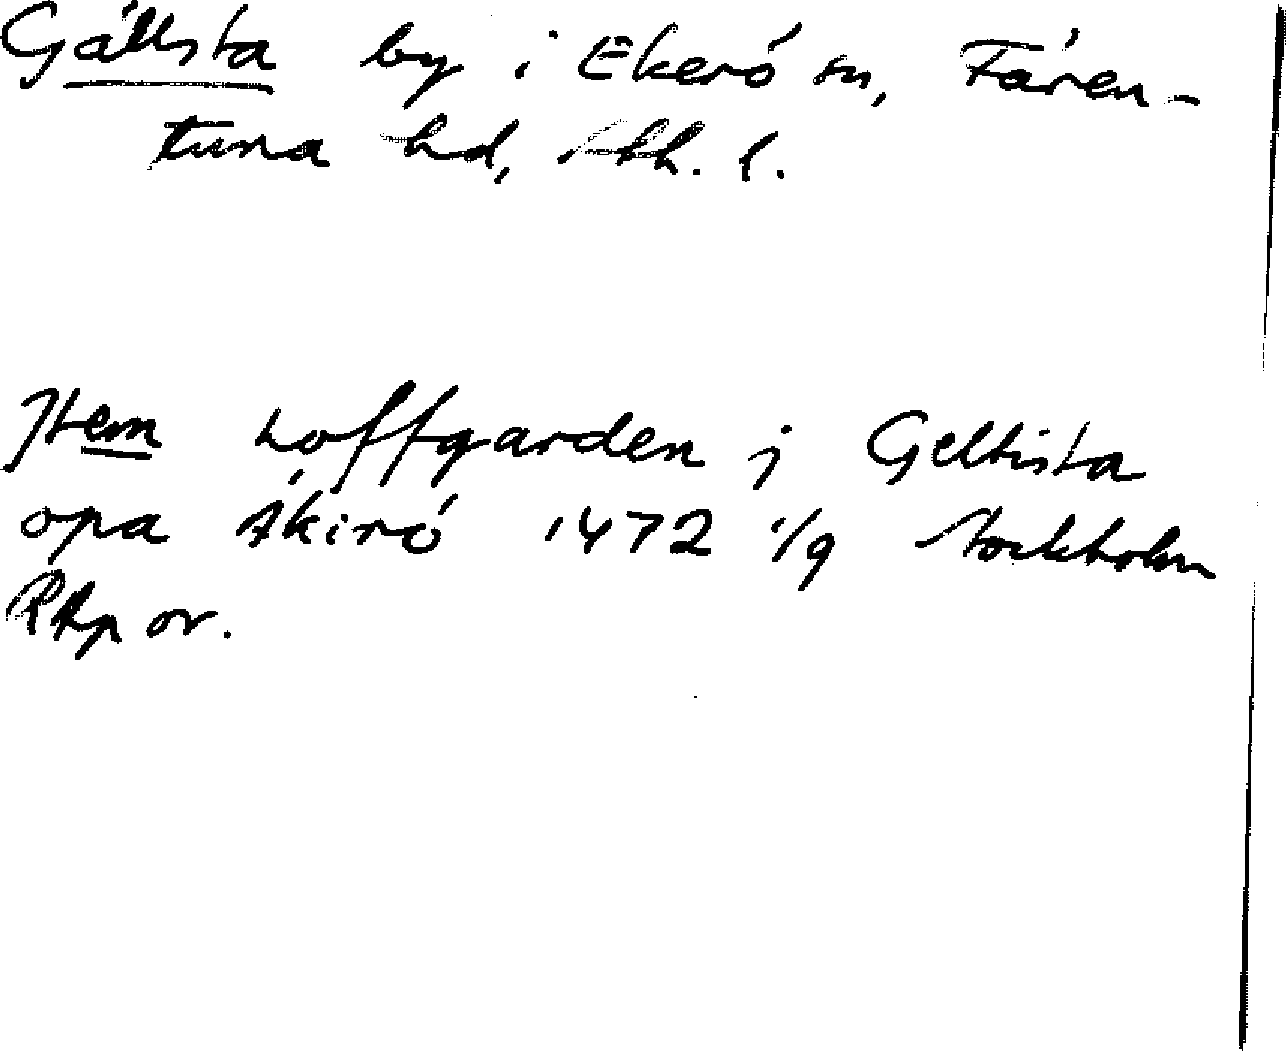 Gällsta by i Ekerö sn, Fären-
tuna hd, Sthh. l.
Item hoffgarden j Geltista
opa Ákirö 1472 1/9 Stockholm
RAp or.